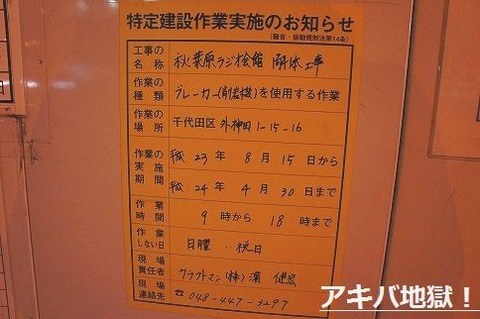 特定建設作業実施のお知らせ
(騒音・振動規制法第14条)
工事の名称 秋葉原ラジオ会館 解体工事
作業の種類 ブレーカー(削岩機)を使用する作業
作業の場所 千代田区 外神田1-15-16
作業の実施期間 平成 23年 8月 15日から
平成 24年 4月 30日まで
作業時間 9時から 18時まで
作業しない日 日曜 ・ 祝日
現場責任者 クラフトマン(株) 濱 健宏
現場連絡先 ☎ 048-447-3297
アキバ地獄!